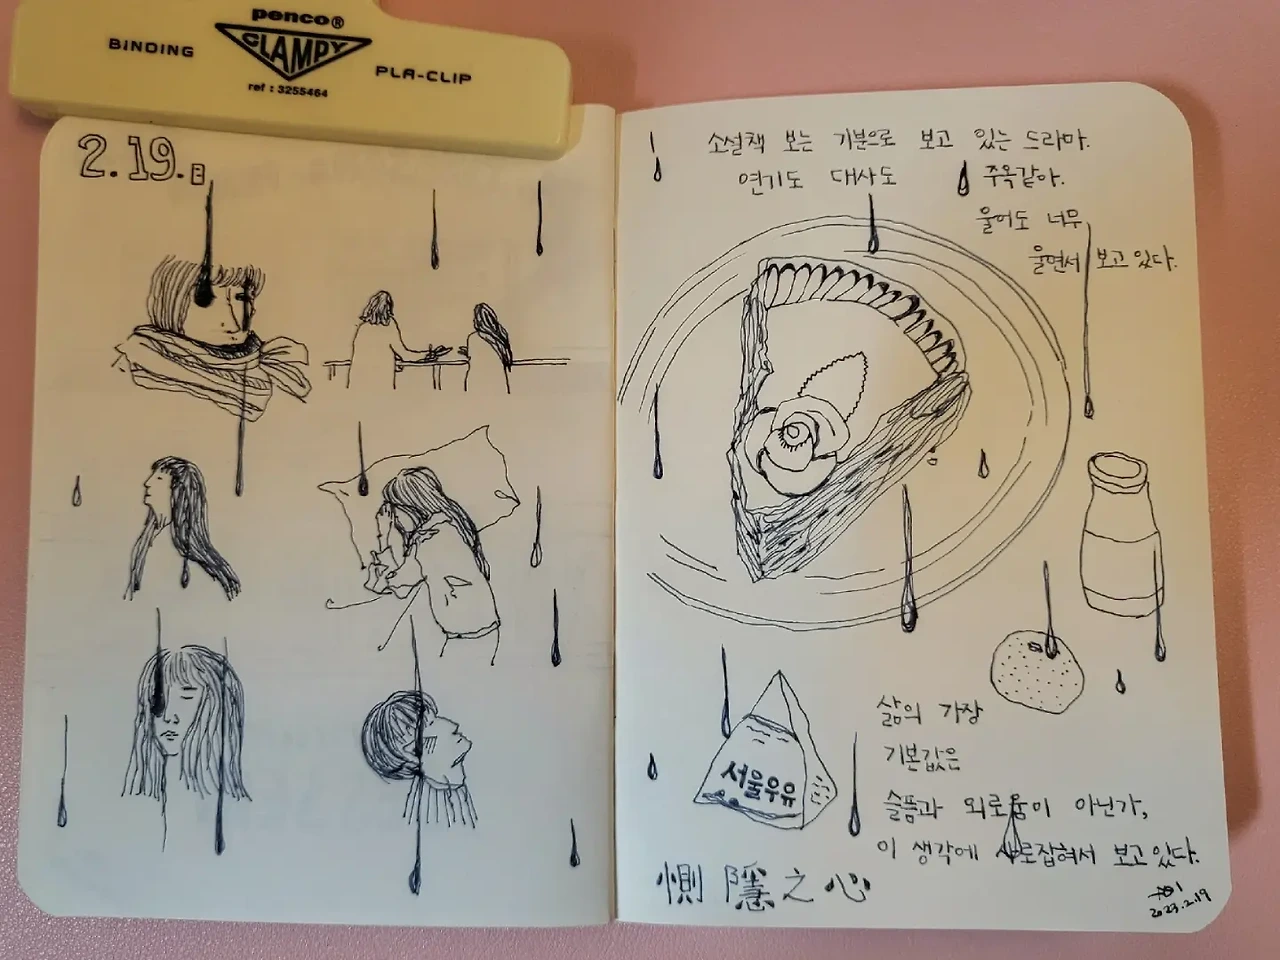 penco®
BINDING
CLAMPY
PLA-CLIP
ref : 3255464
2.19.日
소설책 보는 기분으로 보고 있는 드라마.
연기도 대사도 주옥같아.
울어도 너무
울면서 보고 있다.
서울우유
삶의 가장
기본값은
슬픔과 외로움이 아닌가,
이 생각에 사로잡혀서 보고 있다.
惻隱之心
2023.2.19